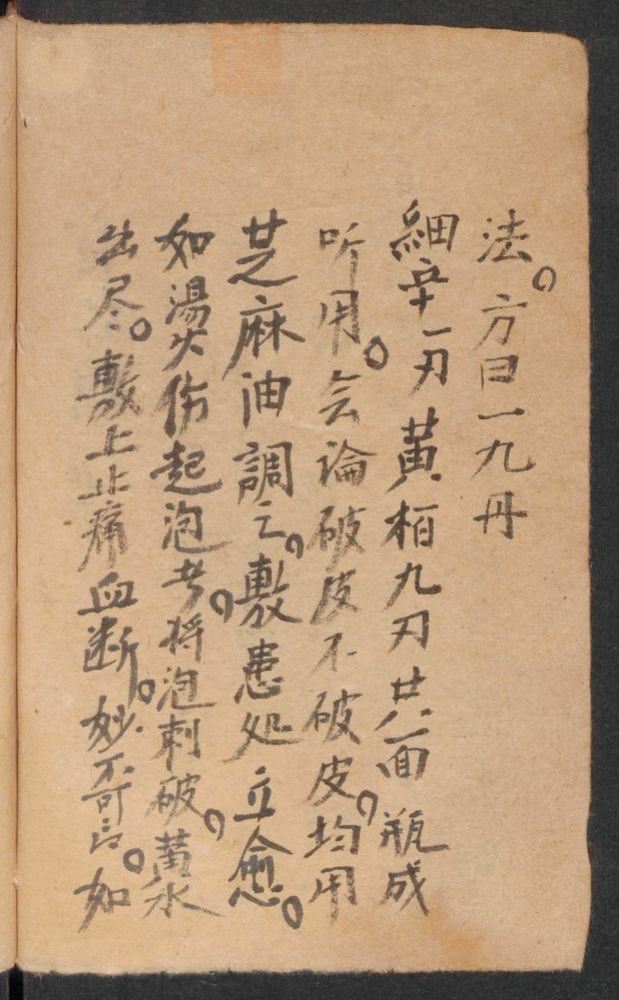 法。方曰一九丹
細辛一刃黃栢九刃共面瓶成
听用。会論破皮不破皮，均用
芝麻油調之，敷患処立愈。
如湯火伤起泡者，将泡刺破，黃水
出尽。敷上止痛血断，妙不可言。如